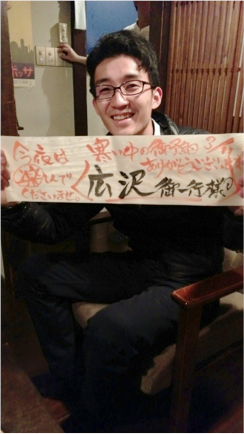 寒い中の御予約
ありがとうございます
広沢 御一行様
今夜は
楽しんで
くださいませ。